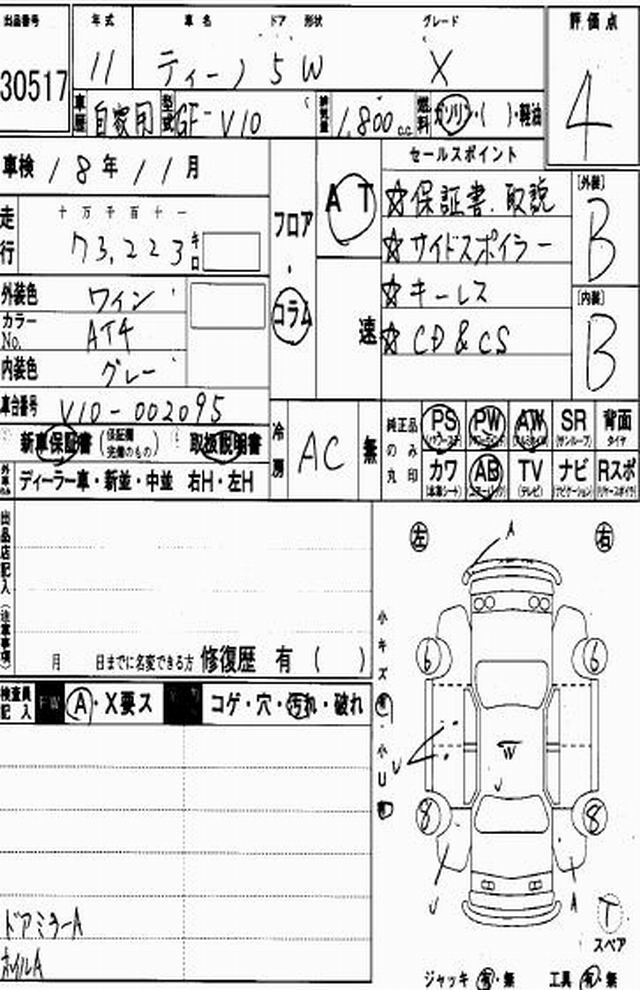 出品番号 年式 車名 ドア 形状 グレード 評価点
30517 11 ティーノ 5 W X 4
車歴 自家用 型式 GF-V10 排気量 1,800 c.c. 燃料 ガソリン・( )・軽油
車検 18年 11月
セールスポイント
走行 十万千百十一
73,223 キロ
フロア・コラム
AT
速
☆保証書、取説
☆サイドスポイラー
☆キーレス
☆CD&CS
[外装]
B
[内装]
B
外装色 ワイン
カラーNo. AT4
内装色 グレー
車台番号 V10-002095
新車保証書 (保証欄完備のもの) 取扱説明書
冷房 AC 無
純正品のみ丸印
PS (パワーステ) PW (パワーウインド) AW (アルミホイル) SR (サンルーフ) 背面タイヤ
カワ (本革シート) AB (エアーバック) TV (テレビ) ナビ (ナビゲーション) Rスポ (リヤースポイラ)
外車のみ ディーラー車・新並・中並 右H・左H
出品店記入(注意事項)
月 日までに名変できる方 修復歴 有 ( )
検査員記入 FW A・X要ス コゲ・穴・汚れ・破れ
ドアミラーA
ホイルA
小キズ有・小U有
左 右
A
6 6
U
W
U
8 8
U A
T
スペア
ジャッキ 有・無 工具 有・無